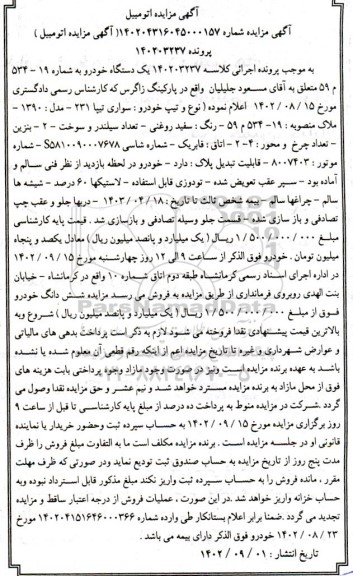 آگهی مزایده اتومبیل
آگهی مزایده شماره ۱۴۰۲۰۴۳۱۶۰۴۵۰۰۰۱۵۷( آگهی مزایده اتومبیل )
پرونده ۱۴۰۲۰۳۲۳۷
به موجب پرونده اجرائی کلاسه ۱۴۰۲۰۳۲۳۷ یک دستگاه خودرو به شماره ۱۹ - ۵۳۴
م ۵۹ متعلق به آقای مسعود جلیلیان واقع در پارکینگ زاگرس که کارشناس رسمی دادگستری
مورخ ۱۵ / ۰۸ / ۱۴۰۲ اعلام نموده ( نوع و تیپ خودرو : سواری تیبا ۲۳۱ - مدل : ۱۳۹۰ -
پلاک منصوبه : ۱۹ - ۵۳۴ م ۵۹ - رنگ : سفید روغنی - تعداد سیلندر و سوخت - ۲ - بنزین
- تعداد چرخ و محور : ۴ - ۲ - اتاق : فابریک - شماره شاسی S۵۸۱۰۰۹۰۰۰۷۶۷۸ - شماره
موتور : ۸۰۰۷۴۰۳ - قابلیت تبدیل پلاک : دارد - خودرو در لحظه بازدید از نظر فنی سالم و
آماده بود - سپر عقب تعویض شده - تودوزی قابل استفاده - لاستیکها ۶۰ درصد - شیشه ها
سالم - چراغها سالم - بیمه شخص ثالث تا تاریخ : ۱۸ / ۰۴ / ۱۴۰۳ - دربها جلو و عقب چپ
تصادفی و باز سازی شده - قسمت جلو وسیله تصادفی و بازسازی شد . قیمت پایه کارشناسی
مبلغ ۱/۵۰۰/۰۰۰/۰۰۰ ریال ( یک میلیارد و پانصد میلیون ریال) معادل یکصد و پنجاه
میلیون تومان . خودرو فوق الذکر از ساعت ۹ الی ۱۲ روز چهارشنبه مورخ ۱۵ / ۰۹ / ۱۴۰۲
در اداره اجرای اسناد رسمی کرمانشاه طبقه دوم اتاق شماره ۱۰ واقع در کرمانشاه - خیابان
بنت الهدی روبروی فرمانداری از طریق مزایده به فروش می رسد مزایده شش دانگ خودرو
فوق از مبلغ ۱/۵۰۰/۰۰۰/۰۰۰ ریال ( یک میلیارد و پانصد میلیون ریال ) شروع و به
بالاترین قیمت پیشنهادی نقدا فروخته می شود لازم به ذکر است پرداخت بدهی های مالیاتی
و عوارض شهرداری و غیره تا تاریخ مزایده اعم از اینکه رقم قطعی آن معلوم شده یا نشده
باشد به عهده برنده مزایده است ونیز در صورت وجود مازاد وجوه پرداختی بابت هزینه های
فوق از محل مازاد به برنده مزایده مسترد خواهد شد و نیم عشر و حق مزایده نقدا وصول می
گردد .شرکت در مزایده منوط به پرداخت ده درصد از مبلغ پایه کارشناسی تا قبل از ساعت ۹
روز برگزاری مزایده مورخ ۱۵ / ۰۹ / ۱۴۰۲ به حساب سپرده ثبت وحضور خریدار یا نماینده
قانونی او در جلسه مزایده است . برنده مزایده مکلف است ما به التفاوت مبلغ فروش را ظرف
مدت پنج روز از تاریخ مزایده به حساب صندوق ثبت تودیع نماید ودر صورتی که ظرف مهلت
مقرر ، مانده فروش را به حساب سپرده ثبت واریز نکند مبلغ مذکور قابل استرداد نبوده وبه
حساب خزانه واریز خواهد شد .در این صورت ، عملیات فروش از درجه اعتبار ساقط و مزایده
تجدید می گردد .ضمنا برابر اعلام بستانکار طی وارده شماره ۱۴۰۲۰۴۱۵۱۶۴۶۰۰۰۳۶۶ مورخ
۲۳ / ۰۸ / ۱۴۰۲ خودرو فوق الذکر دارای بیمه می باشد .
تاریخ انتشار : ۰۱ / ۰۹ / ۱۴۰۲